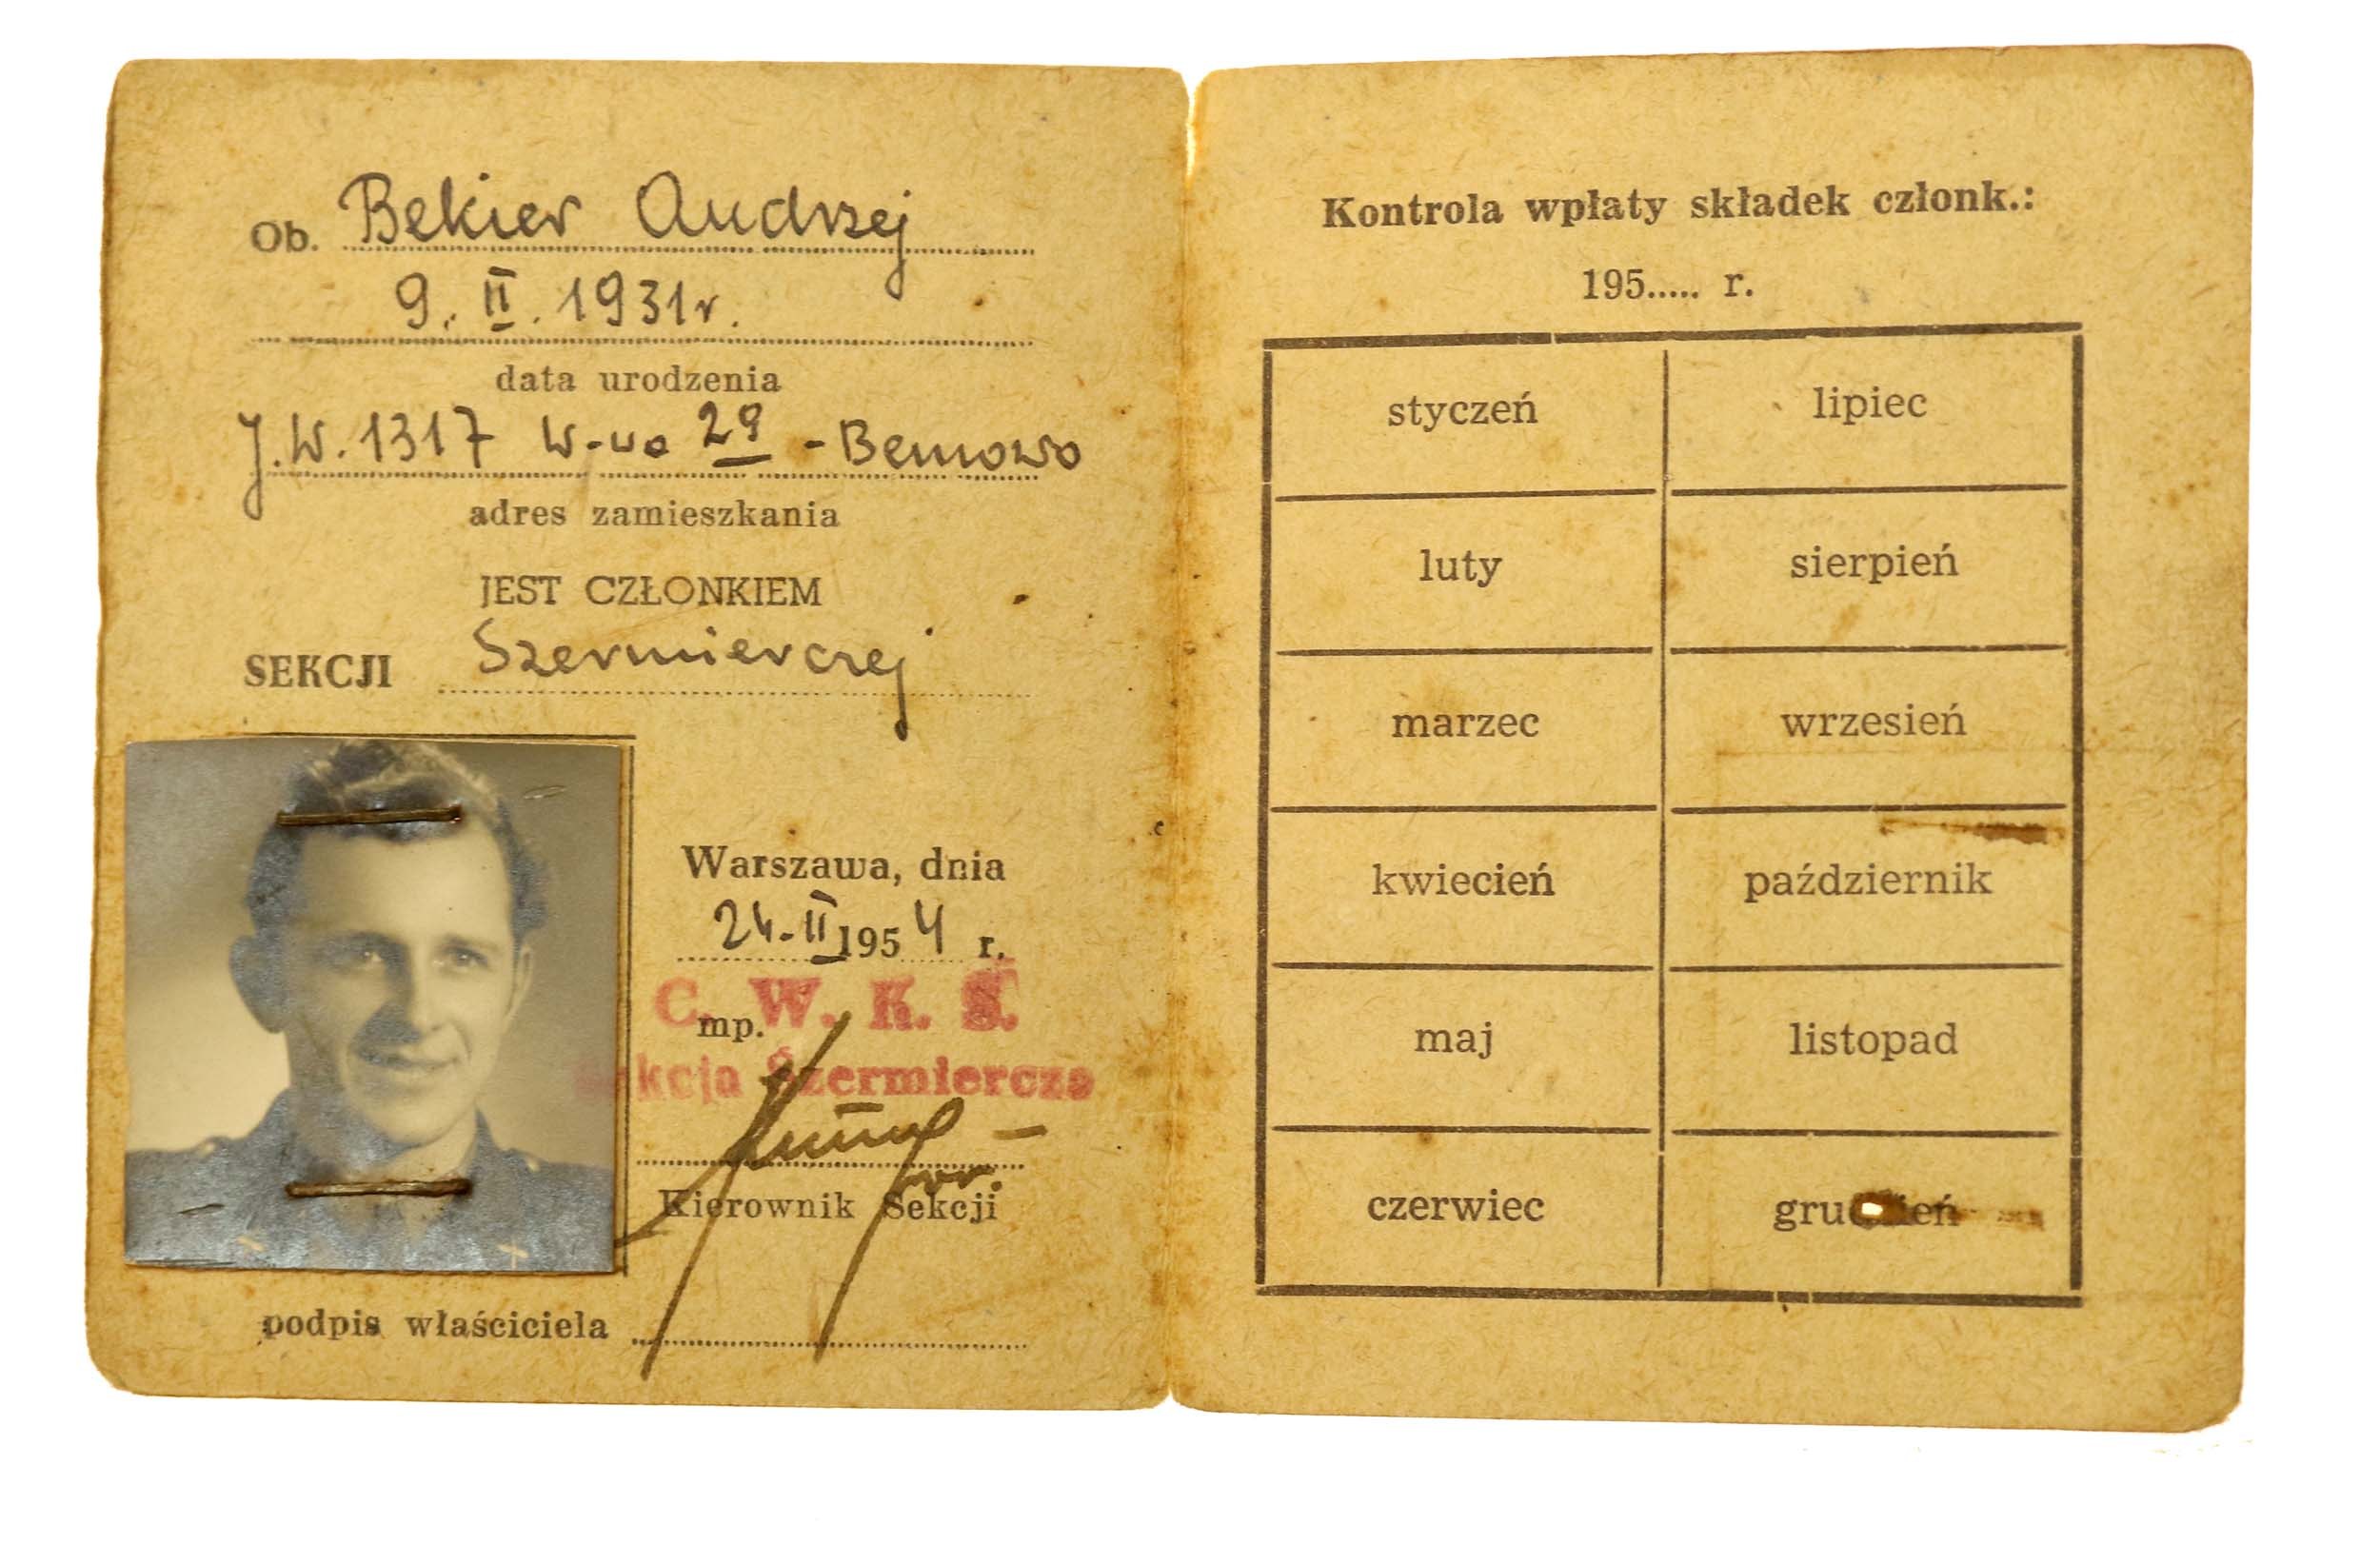 Ob. Bekier Andrzej
9. II. 1931r.
data urodzenia
J.W. 1317 W-wa 29 - Bemowo
adres zamieszkania
JEST CZŁONKIEM
SEKCJI Szermierczej
Warszawa, dnia
24-II 1954 r.
C. W. K. S.
mp.
Sekcja Szermiercza
Kierownik Sekcji
podpis właściciela
Kontrola wpłaty składek członk.:
195..... r.
styczeń lipiec
luty sierpień
marzec wrzesień
kwiecień październik
maj listopad
czerwiec grudzień